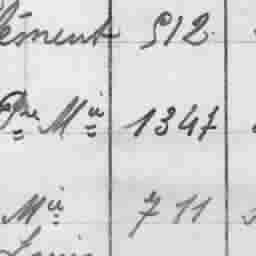 lément 512
Pre Mie 1347
Mie 711
Louis